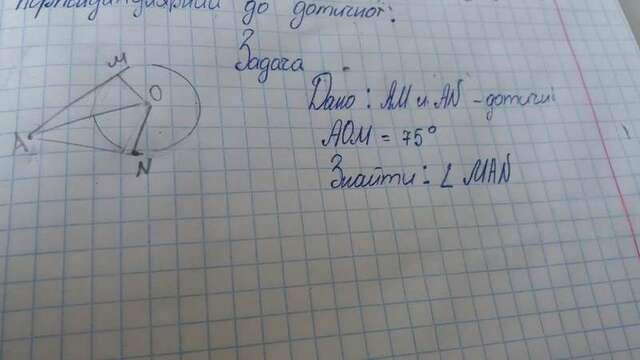 перпендикулярний до дотичної.
Задача
Дано: AM и AN - дотичні
AOM = 75°
Знайти: ∠ MAN
M
O
A
N